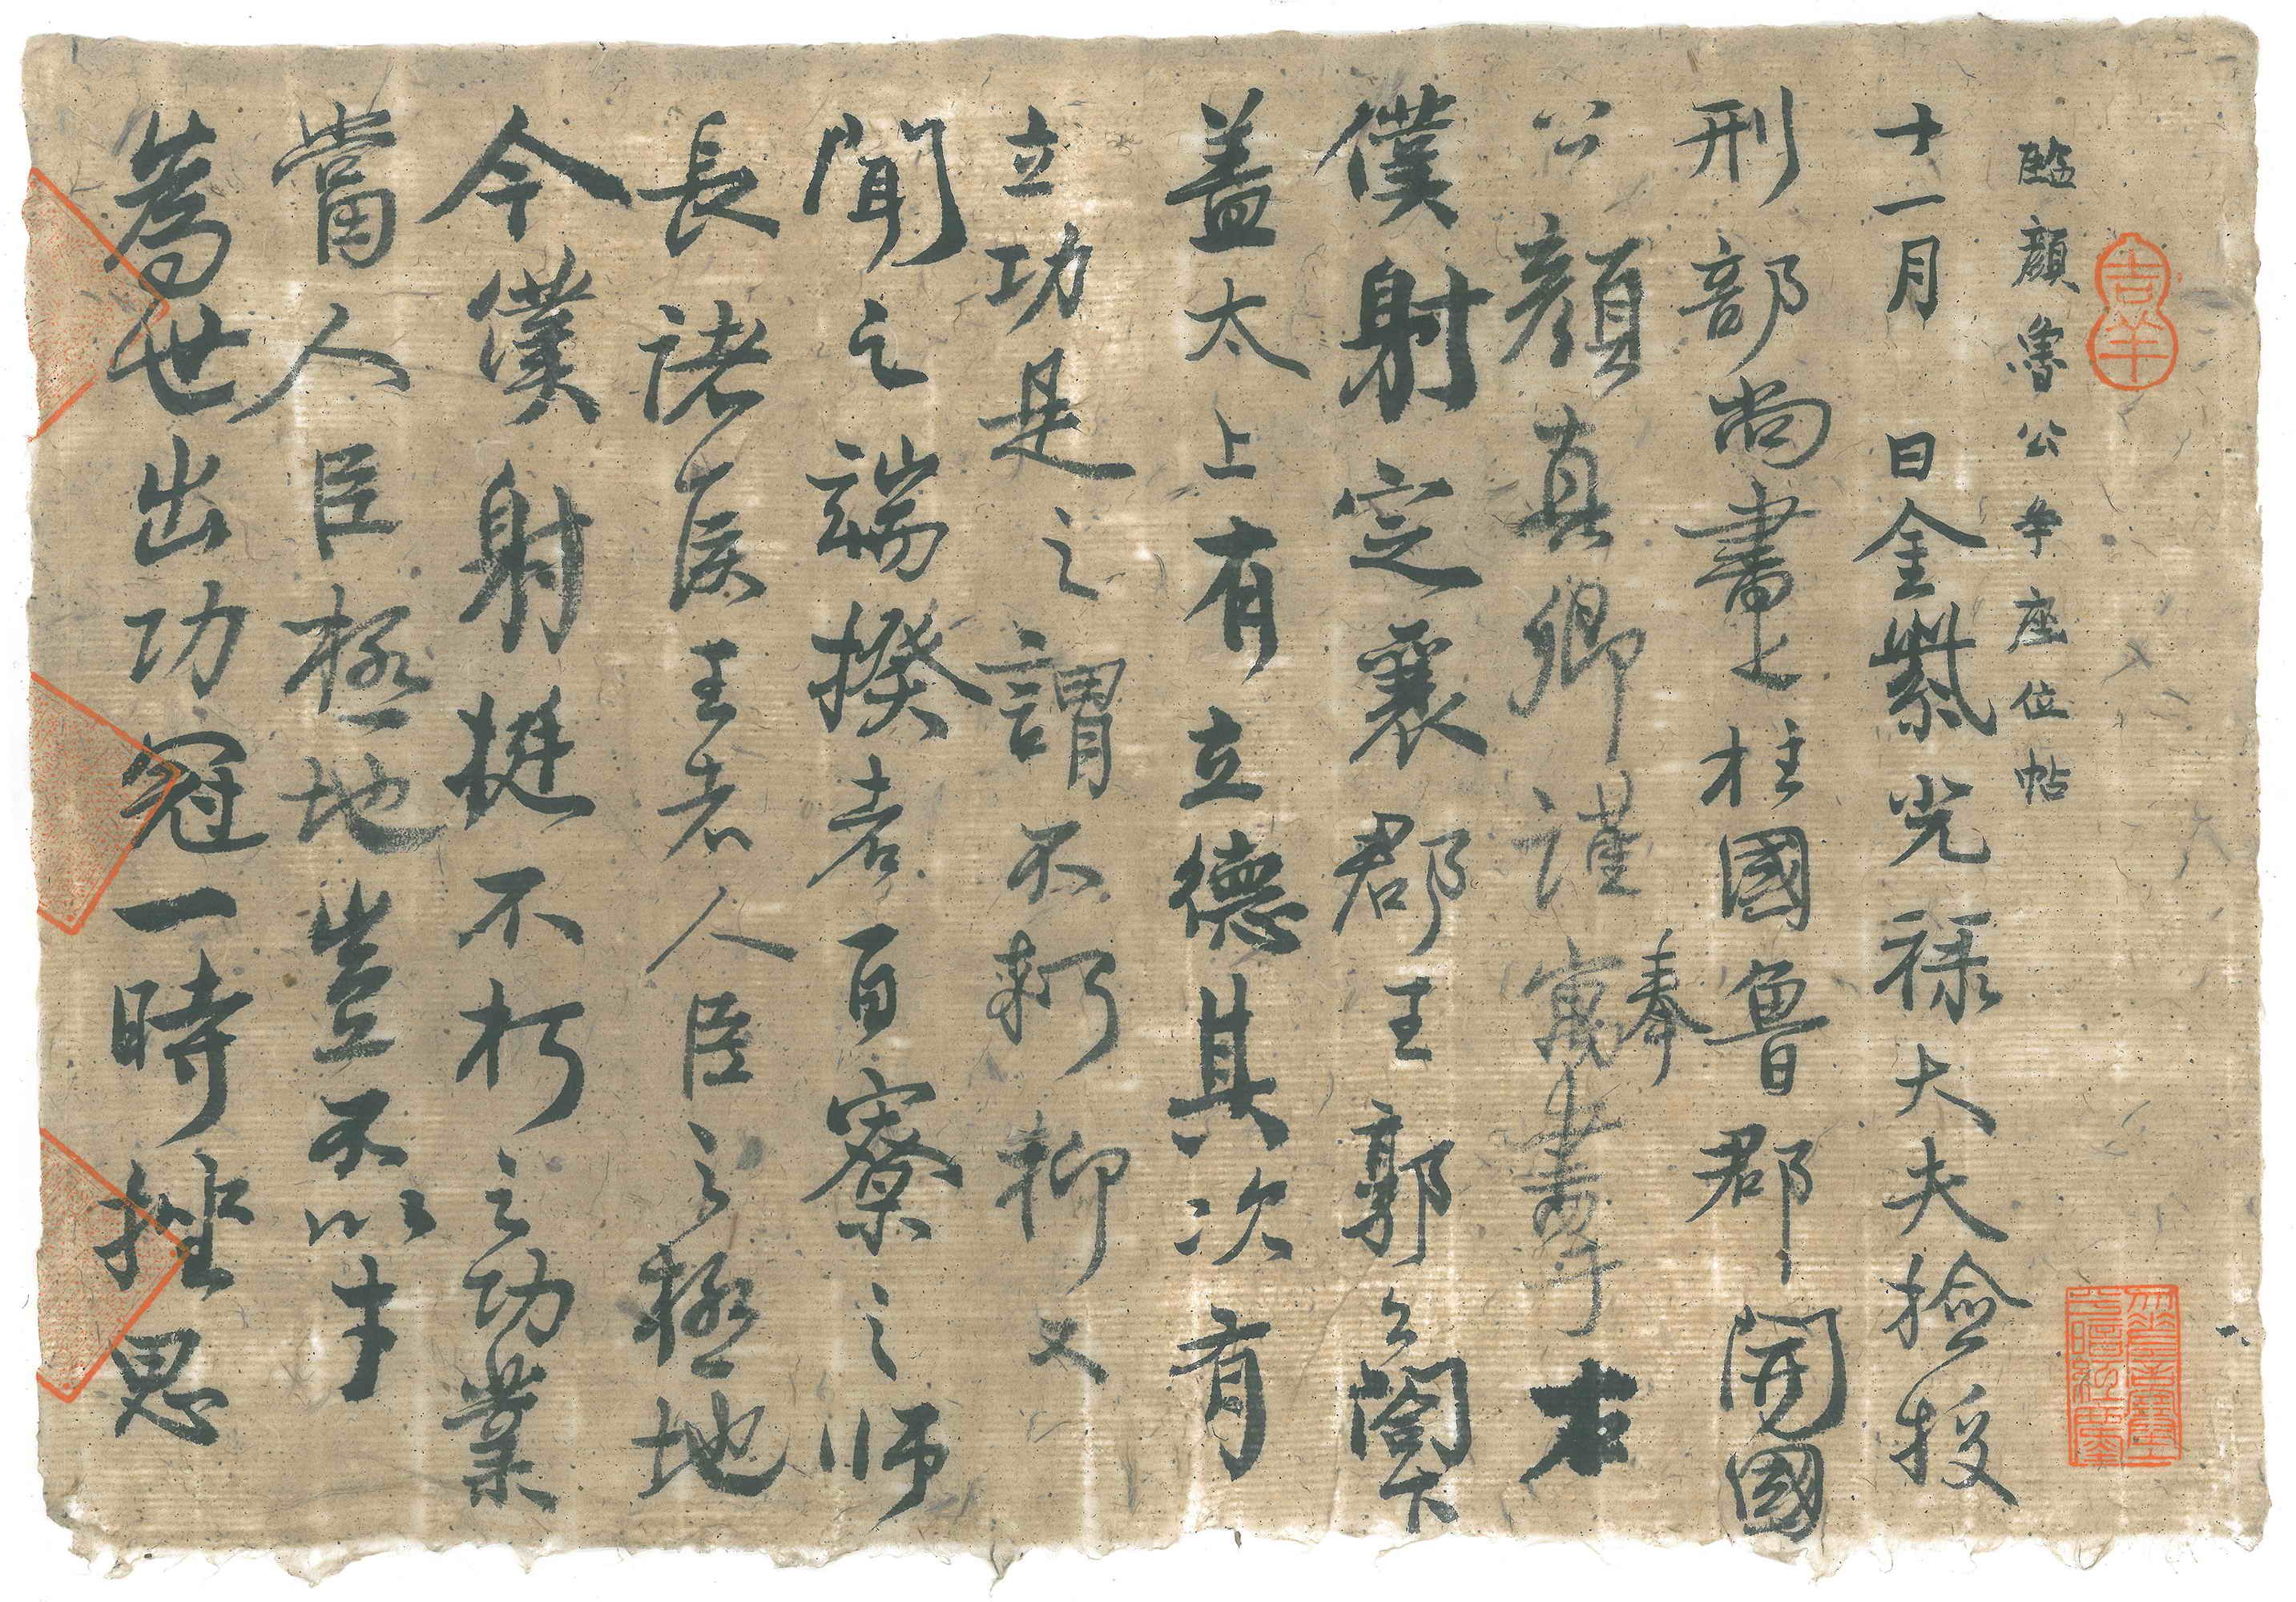 臨顏魯公爭座位帖
十一月 日金紫光祿大夫撿挍
刑部尚書上柱國魯郡開國
公顏真卿謹寓書奉右
僕射定襄郡王郭公閤下
蓋太上有立德其次有
立功是之謂不朽抑又
聞之端揆者百寮之師
長諸侯王者人臣之極地
今僕射挺不朽之功業
當人臣極地豈不以才
為世出功冠一時挫思
吉羊